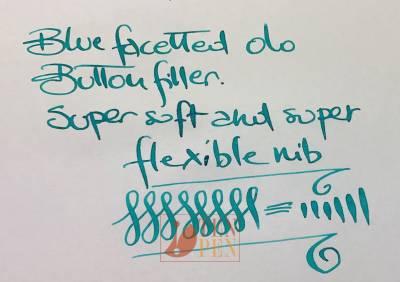 Blue facetted olo
Button filler.
Super soft and super
flexible nib
PEN
PEN